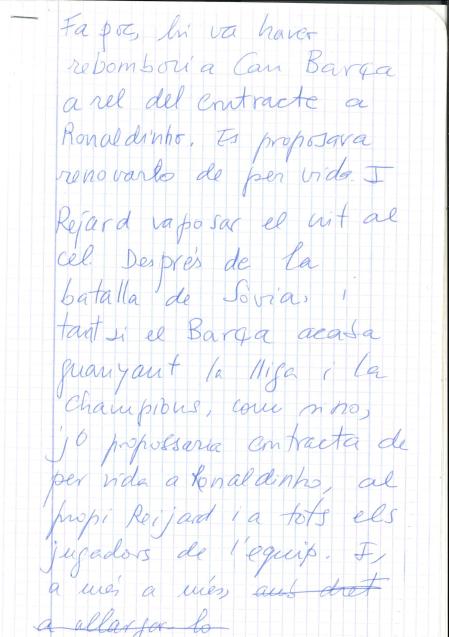 Fa poc, hi va haver
rebombori a Can Barça
a rel del contracte a
Ronaldinho. Es proposava
renovarlo de per vida. I
Rejard va posar el crit al
cel. Després de la
batalla de Sòvia, i
tant si el Barça acaba
guanyant la lliga i la
Champions, com sino,
jo propossaria contracta de
per vida a Ronaldinho, al
propi Reijard i a tots els
jugadors de l'equip. I,
a més a més, amb dret
a allargar-lo